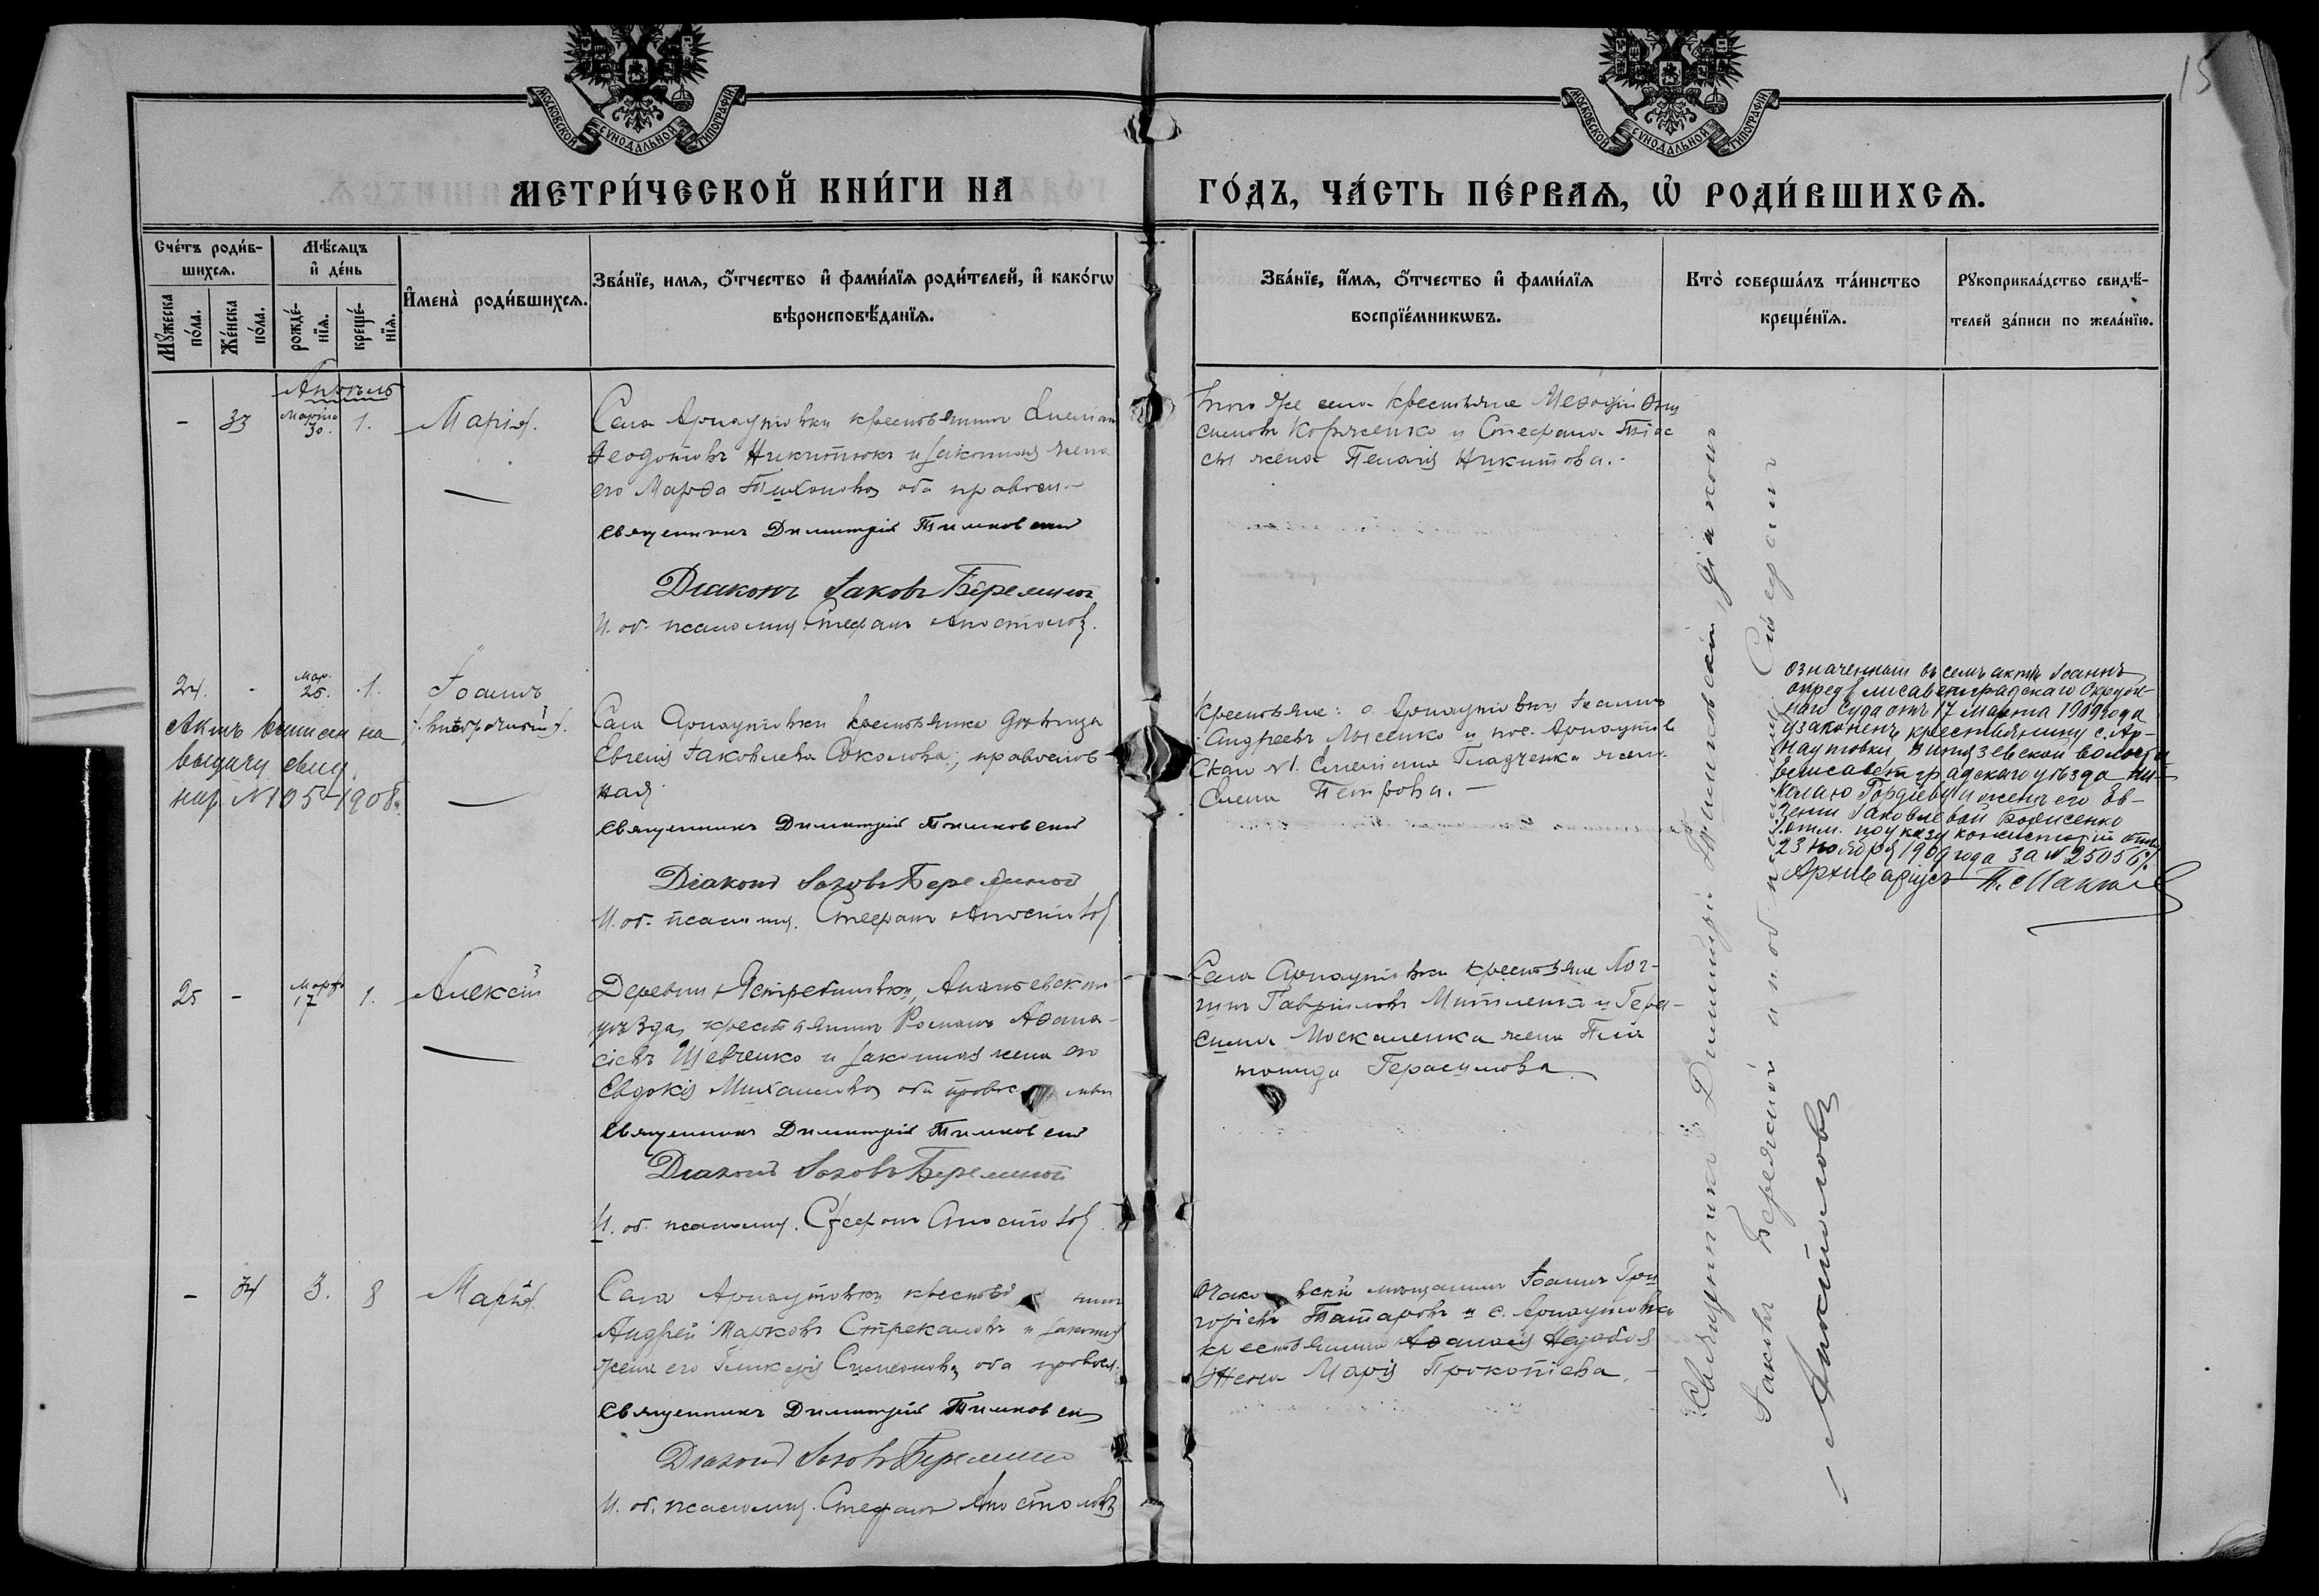 15
МОСКОВСКОЙ СѴНОДАЛЬНОЙ ТИПОГРАФІИ
МОСКОВСКОЙ СѴНОДАЛЬНОЙ ТИПОГРАФІИ
МЕТРИ́ЧЕСКОЙ КНИ́ГИ НА
ГО́ДЪ, ЧА́СТЬ ПЕ́РВАѦ, Ѡ РОДИ́ВШИХСѦ.
Сче́тъ роди́в-
шихсѧ.
Мꙋ́жеска по́ла.
Же́нска по́ла.
Мѣ́сѧцъ
и҆ де́нь
рожде́-
нїѧ.
креще́-
нїѧ.
И҆мена̀ роди́вшихсѧ.
Зва́нїе, имѧ, ѻ҆́тчество и҆ фами́лїѧ роди́телей, и҆ како́гѡ
вѣроисповѣ́данїѧ.
Зва́нїе, и҆́мѧ, ѻ҆́тчество и҆ фами́лїѧ
воспрїе́мникѡвъ.
Кто̀ соверша́лъ та́инство
креще́нїѧ.
Рꙋкоприкла́дство свидѣ́-
телей за́писи по жела́нїю.
Апрѣль
- 33 Марта 30. 1. Марія.
Села Арнаутовки крестьянинъ
Ѳеодотовъ Никитюкъ и законная жена
его Марѳа Тихонова оба правосл.
Священникъ Димитрій Тимковскій
Діаконъ Іаковъ
И. об. псаломщ. Стефанъ Апостоловъ.
Того же села крестьяне Меѳодій
и Стефана
жена Пелагія Никитова.-
24. - Мар. 25. 1. Іоаннъ
Актъ выписан на
выдачу свид.
нар. №105-1908г.
Села Арнаутовки крестьянка дѣвица
Евгенія Іаковлева Соколова, православ
ная
Священникъ Димитрій Тимковскій
Діаконъ Іаковъ
И. об. псаломщ. Стефанъ Апостолов
Крестьяне: с. Арнаутовки Іоаннъ
Андреевъ Лысенко и пос. Арнаутов
скаго №1. жена
Елена Петрова. -
означенный въ семъ актѣ Іоаннъ
опред. Елисаветградскаго Окруж-
наго Суда отъ 17 марта 1909 года
узаконенъ крестьянину с. Ар-
наутовки, волости
Елисаветградскаго уѣзда Ни-
колаю Гордіеву и женѣ его Ев-
геніи Іаковлевой Борисенко
отм. по указу консисторіи отъ
23 ноября 1909 года за № 25056
Архиваріусъ
25 - Марта 17 1. Алексій
Деревни Ястребиновки, Ананьевскаго
уѣзда, крестьянинъ Романъ Аѳана-
сіевъ Шевченко и законная жена его
Евдокія Михаилова оба правос
Священникъ Димитрій Тимковскій
Діаконъ Іаковъ
И. об. псаломщ. Стефанъ Апостолов
Села Арнаутовки крестьяне Лог-
гинъ Гавриловъ и Гера-
сима Москаленка жена Пла
тонида Герасимова
- 34 3. 8 Марія
Села Арнаутовки крестья нинъ
Андрей Марковъ Стрекаловъ и законная
жена его Гликерія Симеонова, оба правосл.
Священникъ Димитрій Тимковскій
Діаконъ Іаковъ
И. об. псаломщ. Стефанъ Апостоловъ
Очаковскій мѣщанинъ Іоаннъ Гри
горіевъ Татаровъ и с. Арнаутовки
крестьянина Аѳанасія
жена Марія Прокопіева. -
Священникъ Димитрій Тимковскій, діаконъ
Іаковъ и и. об. псаломщика Стефанъ
Апостоловъ